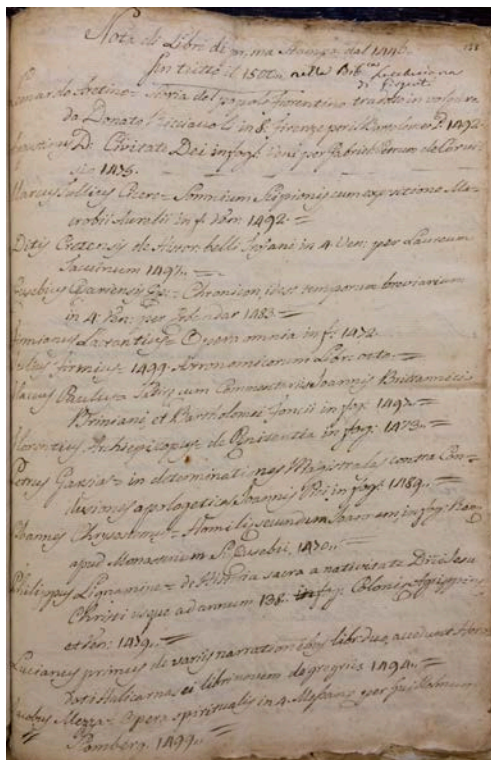 Nota di Libri di prima Stampa dal 1446.
sin tutto il 1500. nella Bib.ca Lucchesiana
di Girgenti
Leonardo Aretino = Storia del popolo fiorentino tradotto in volgare
da Donato Acciaioli in 8. Firenze per il Bartolomeo P. 1492.
Augustinus De Civitate Dei in fog. Ven. per Gabriel Petrum de Tarvi
sio 1475.
Marcus Tullius Cicero = Somnium Scipionis cum expositione Ma=
crobii Aurelii in f. Ven 1492. =
Ditis Cretensis de Histor. belli Trojani in 4. Ven: per
1497. =
Eusebius Cesariensis Ep. = Chronicon, idest temporum breviarium
in 4. Ven: per 1483 =
Firmianus Lactantius = Opera omnia in f. 1472.
Julius firmius = 1499. Astronomicorum Libr: octo. =
Flaccus cum Commentariis Joannis Brittannici
Brixiani, et Bartholomei foncii in fog. 1497. =
florentius Archiepiscopus de Penitentia in fog: 1473. =
Petrus Garsias = in determinationes Magistrales contra Con=
clusiones apologeticas Joannis Pici in fog: 1489. =
Joannes Chrysostomus = Homiliæ secundum Joannem, in fog: Rom:
apud Monasterium S. Eusebii, 1470. =
Philippus Lignamine = de Historia sacra a nativitate Dni Jesu
Christi usque ad annum 138. in fog: Coloniæ Agrippinæ
et Ven: 1479. =
Lucianus primus de variis narrationibus libr: duo, accedunt Hero=
doti Halicarnassei libri novem de gregris 1494. =
Jacobus Mezza = Opera spiritualis in 4. Messanæ per Guillelmum
Schomberg. 1499. =